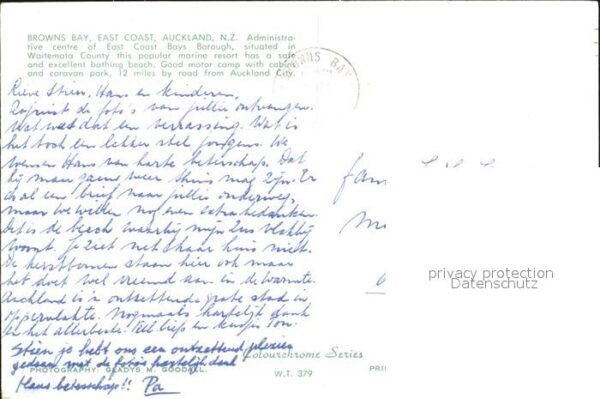 BROWNS BAY, EAST COAST, AUCKLAND, N.Z. Administra-
tive centre of East Coast Bays Borough, situated in
Waitemata County this popular marine resort has a safe
and excellent bathing beach. Good motor camp with cabins
and caravan park, 12 miles by road from Auckland City.
BROWNS BAY
Lieve Stien, Hans en kinderen,
Zojuist de foto's van jullie ontvangen.
Wat was dat een verrassing. Wat is
het toch een lekker stel jongens. We
wensen Hans van harte beterschap. Dat
hij maar gauw weer thuis mag zijn. Er
is al een brief naar jullie onderweg,
maar we willen nog even extra bedanken.
Dit is de beach waarbij mijn zus vlakbij
woont. Je ziet net haar huis niet.
De kerstbomen staan hier ook maar
het doet wel vreemd aan in de warmte.
Auckland is 'n ontzettend grote stad in
oppervlakte. Nogmaals hartelijk dank
en het allerbeste! Veel liefs en kusjes Tom.
Stien je hebt ons een ontzettend plezier
gedaan met de foto's hartelijk dank
Hans beterschap!! Pa
fam
privacy protection
Datenschutz
Colourchrome Series
PHOTOGRAPHY: GLADYS M. GOODALL.
W.T. 379
PRI